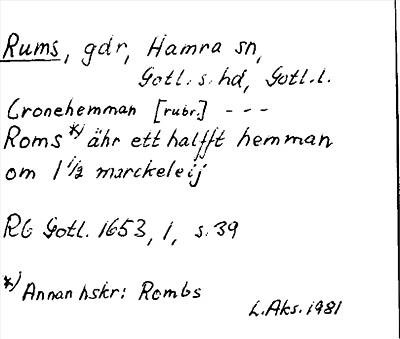 Rums, gdr, Hamra sn,
Gotl. s. hd, Gotl. l.
Cronehemman [rubr.] - - -
Roms *) ähr ett halfft hemman
om 1 1/2 marckeleij
RG Gotl. 1653, 1, s. 39
*) Annan hskr: Rombs
L. Aks. 1981